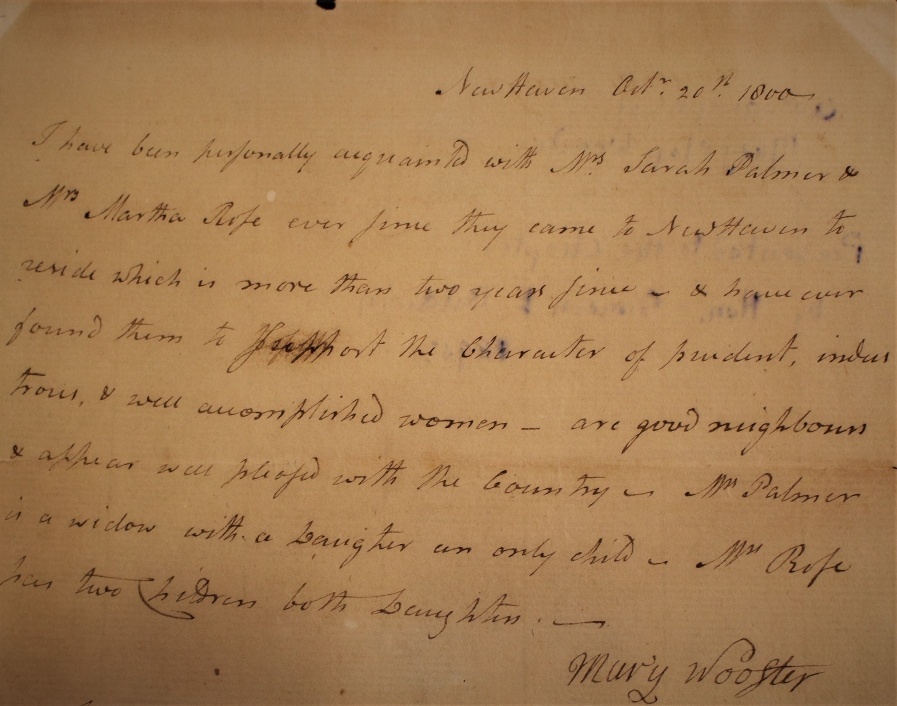 New Haven Octr. 20th. 1800
I have been personally acquainted with Mrs. Sarah Palmer &
Mrs Martha Rose ever since they came to New Haven to
reside which is more than two years since – & have ever
found them to support the Character of prudent, indus
trous, & well accomplished women – are good neighbours
& appear well pleased with the Country – Mrs Palmer
is a widow with a Daughter an only child – Mrs Rose
has two Children both Daughters. —
Mary Wooster